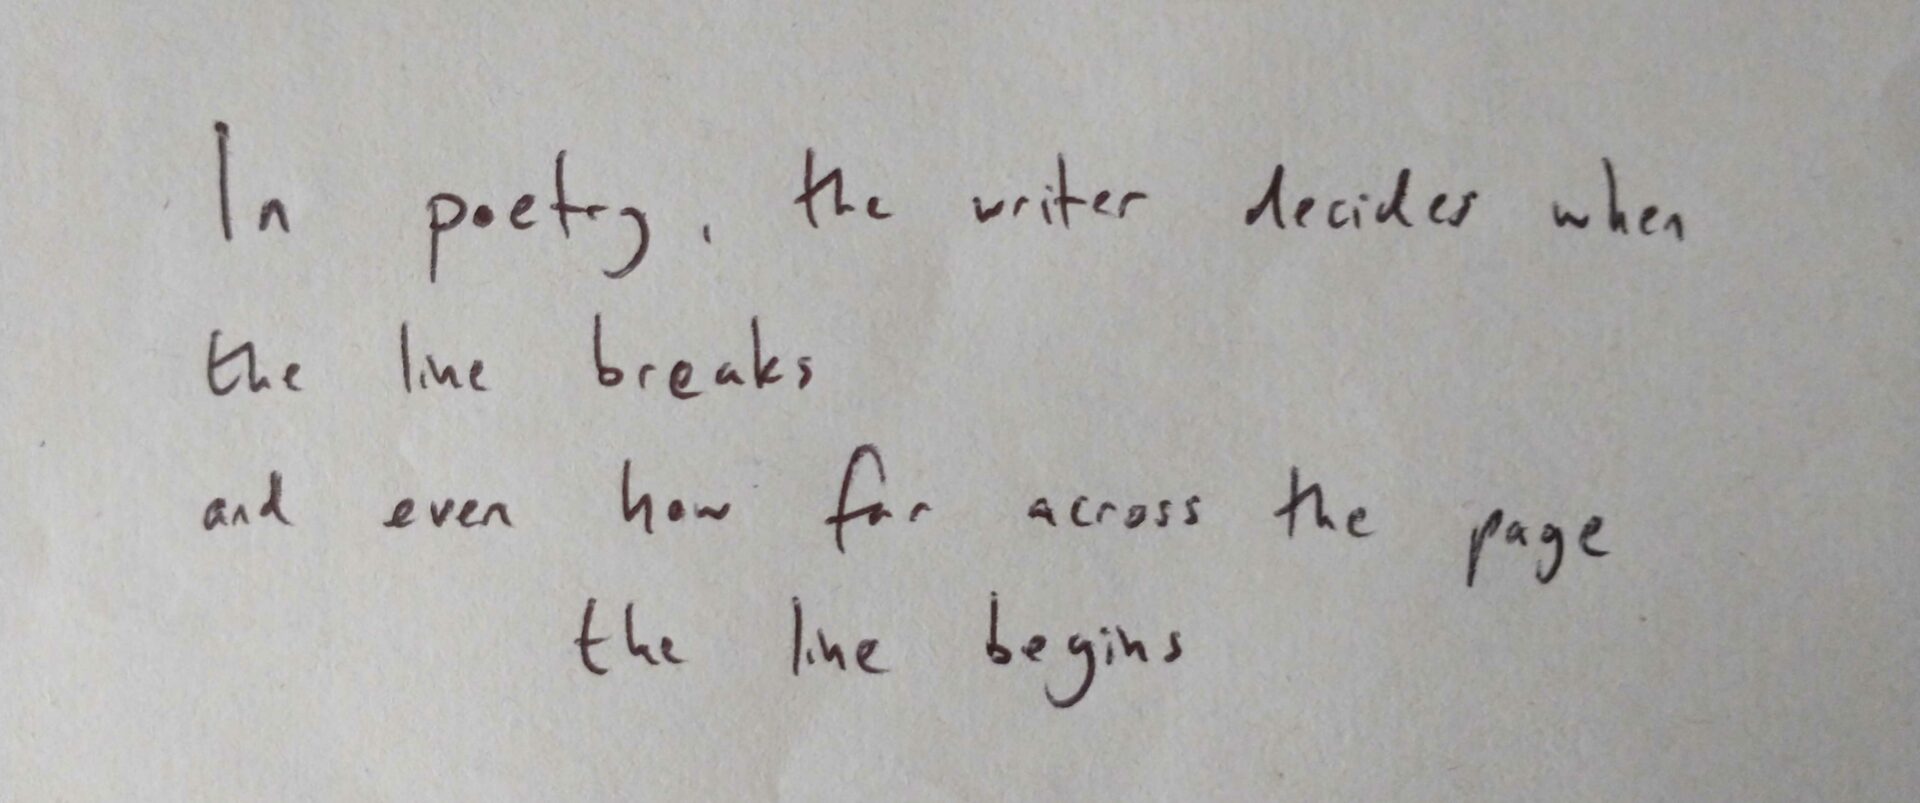 In poetry, the writer decides when
the line breaks
and even how far across the page
            the line begins